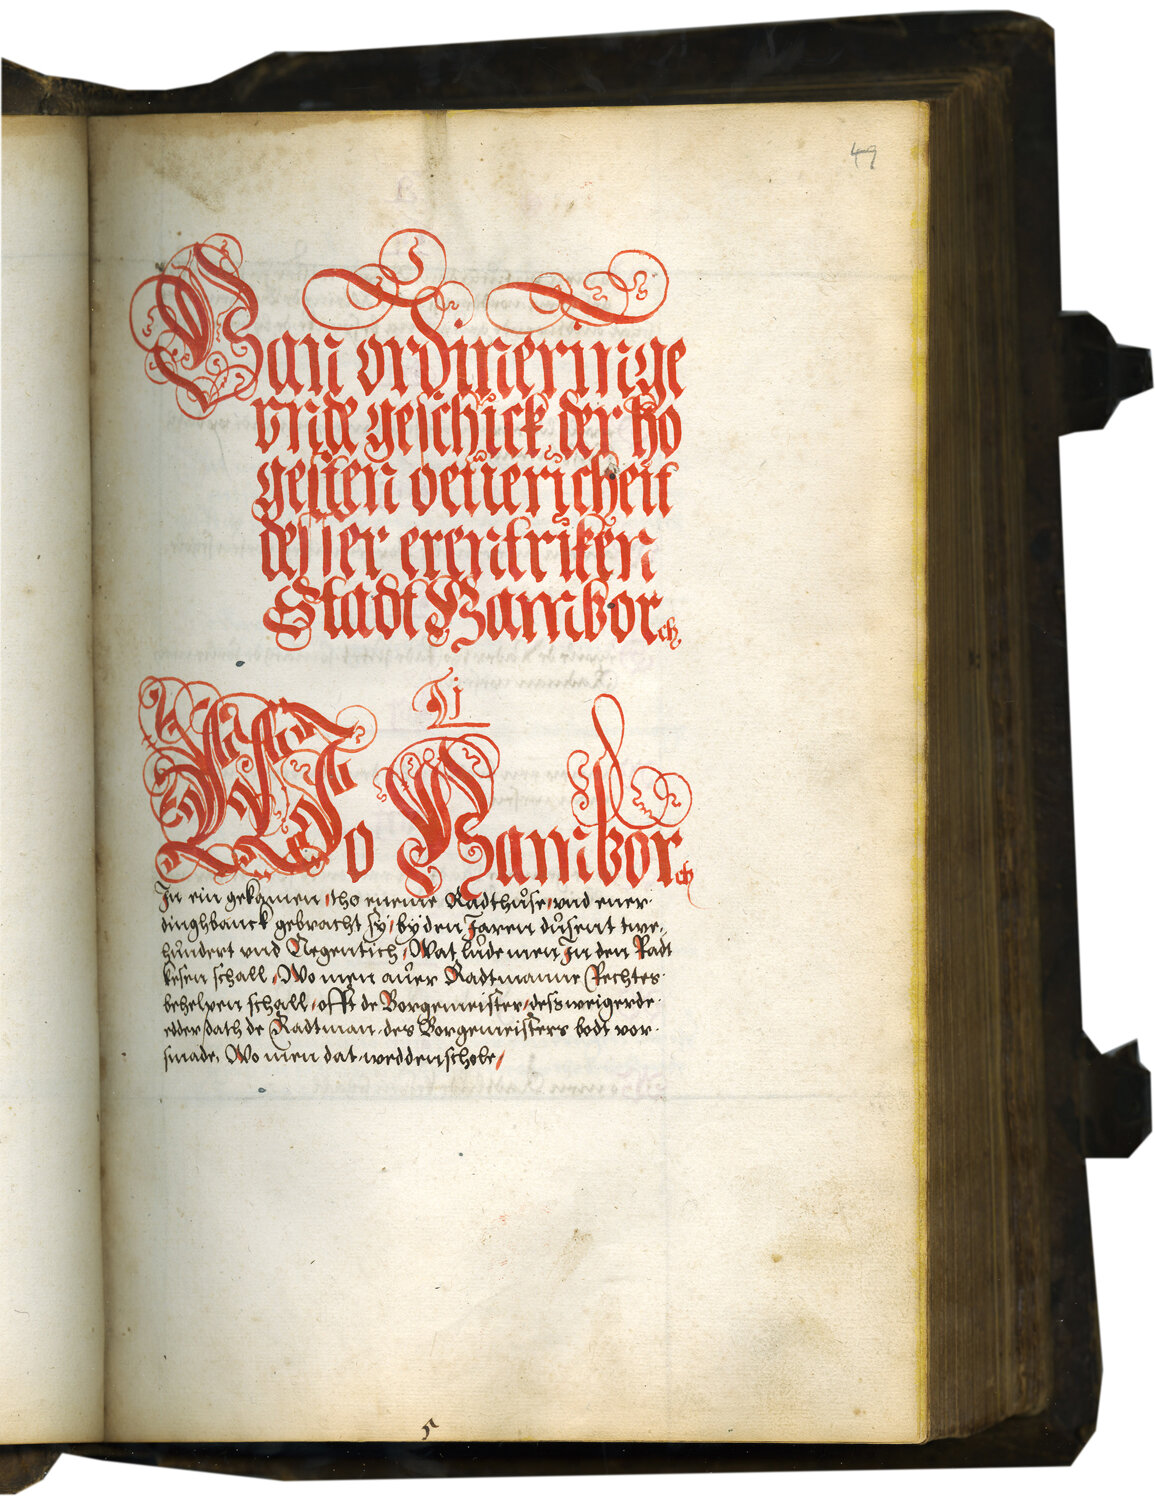 49
Van ordineringe
vnde geschick der ho
gesten oeuericheit
desser erentriken
Stadt Hamborch
I
Wo Hamborch
In ein gekamen, tho eneme Radthuse, vnd ener
dinghbanck gebracht sy, by den Jaren dusent twe,
hundert vnd Negentich, Wat lude men In den Radt
kesen schall, Wo men auer Radtmanne Rechtes
behelpen schall, offt de Borgemeister, dess weigerde
edder dath de Radtman des Borgemeisters bodt vor
smade, Wo men dat wedden schole,